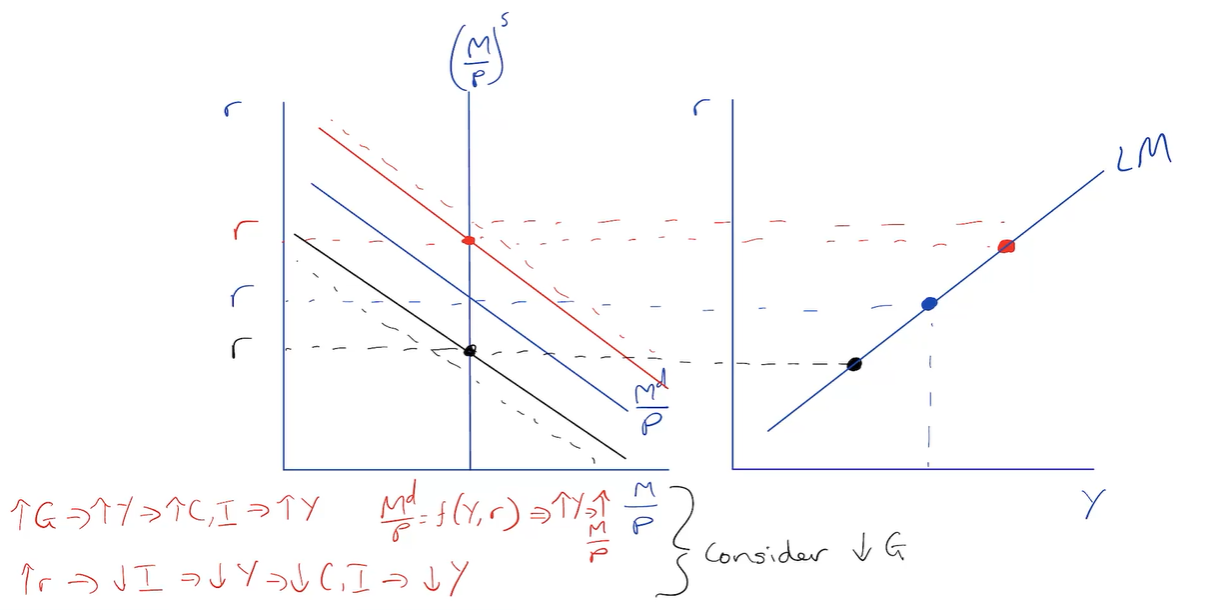 (M/P)^s
r
r
LM
r
r
r
M^d/P
M/P
Y
↑G ⇒ ↑Y ⇒ ↑C, I ⇒ ↑Y
M^d/P = f(Y, r) ⇒ ↑Y ⇒ ↑M/P
↑r ⇒ ↓I ⇒ ↓Y ⇒ ↓C, I ⇒ ↓Y
} Consider ↓G